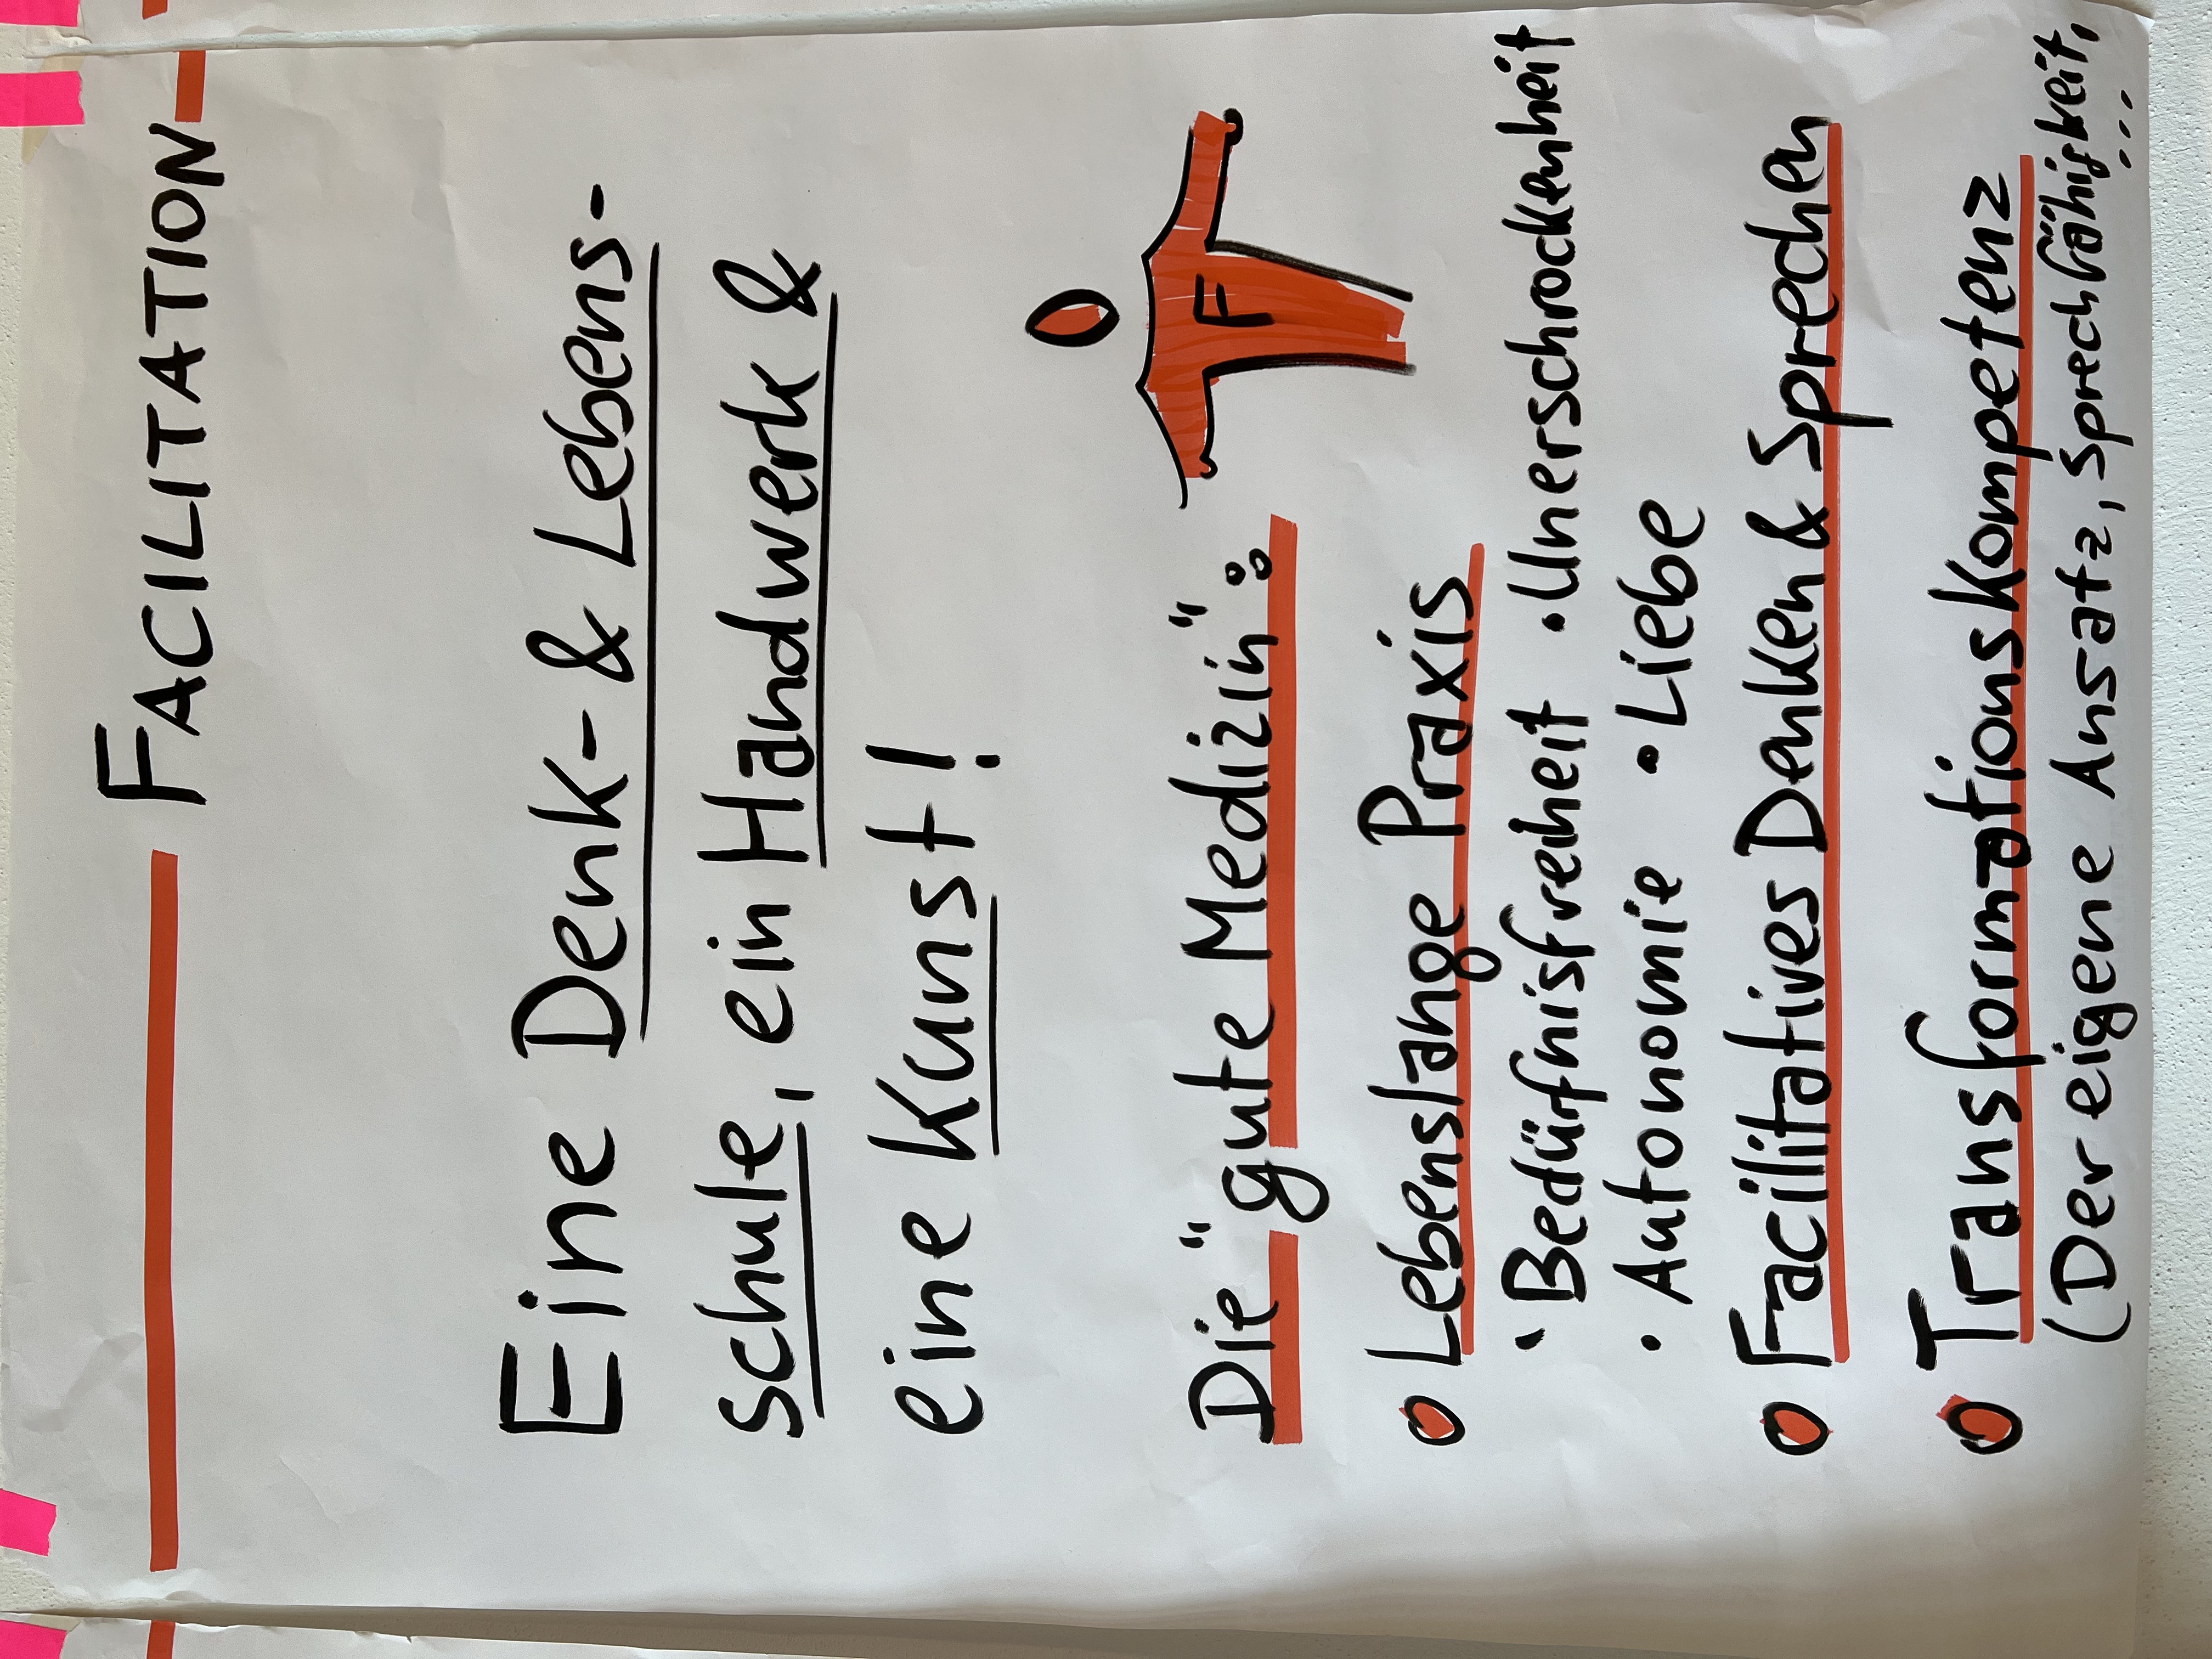 FACILITATION
Eine Denk- & Lebens-
schule, ein Handwerk &
eine Kunst!
F
Die "gute Medizin":
Lebenslange Praxis
· Bedürfnisfreiheit · Unerschrockenheit
· Autonomie · Liebe
Facilitatives Denken & Sprechen
Transformationskompetenz
(Der eigene Ansatz, Sprechfähigkeit,
...